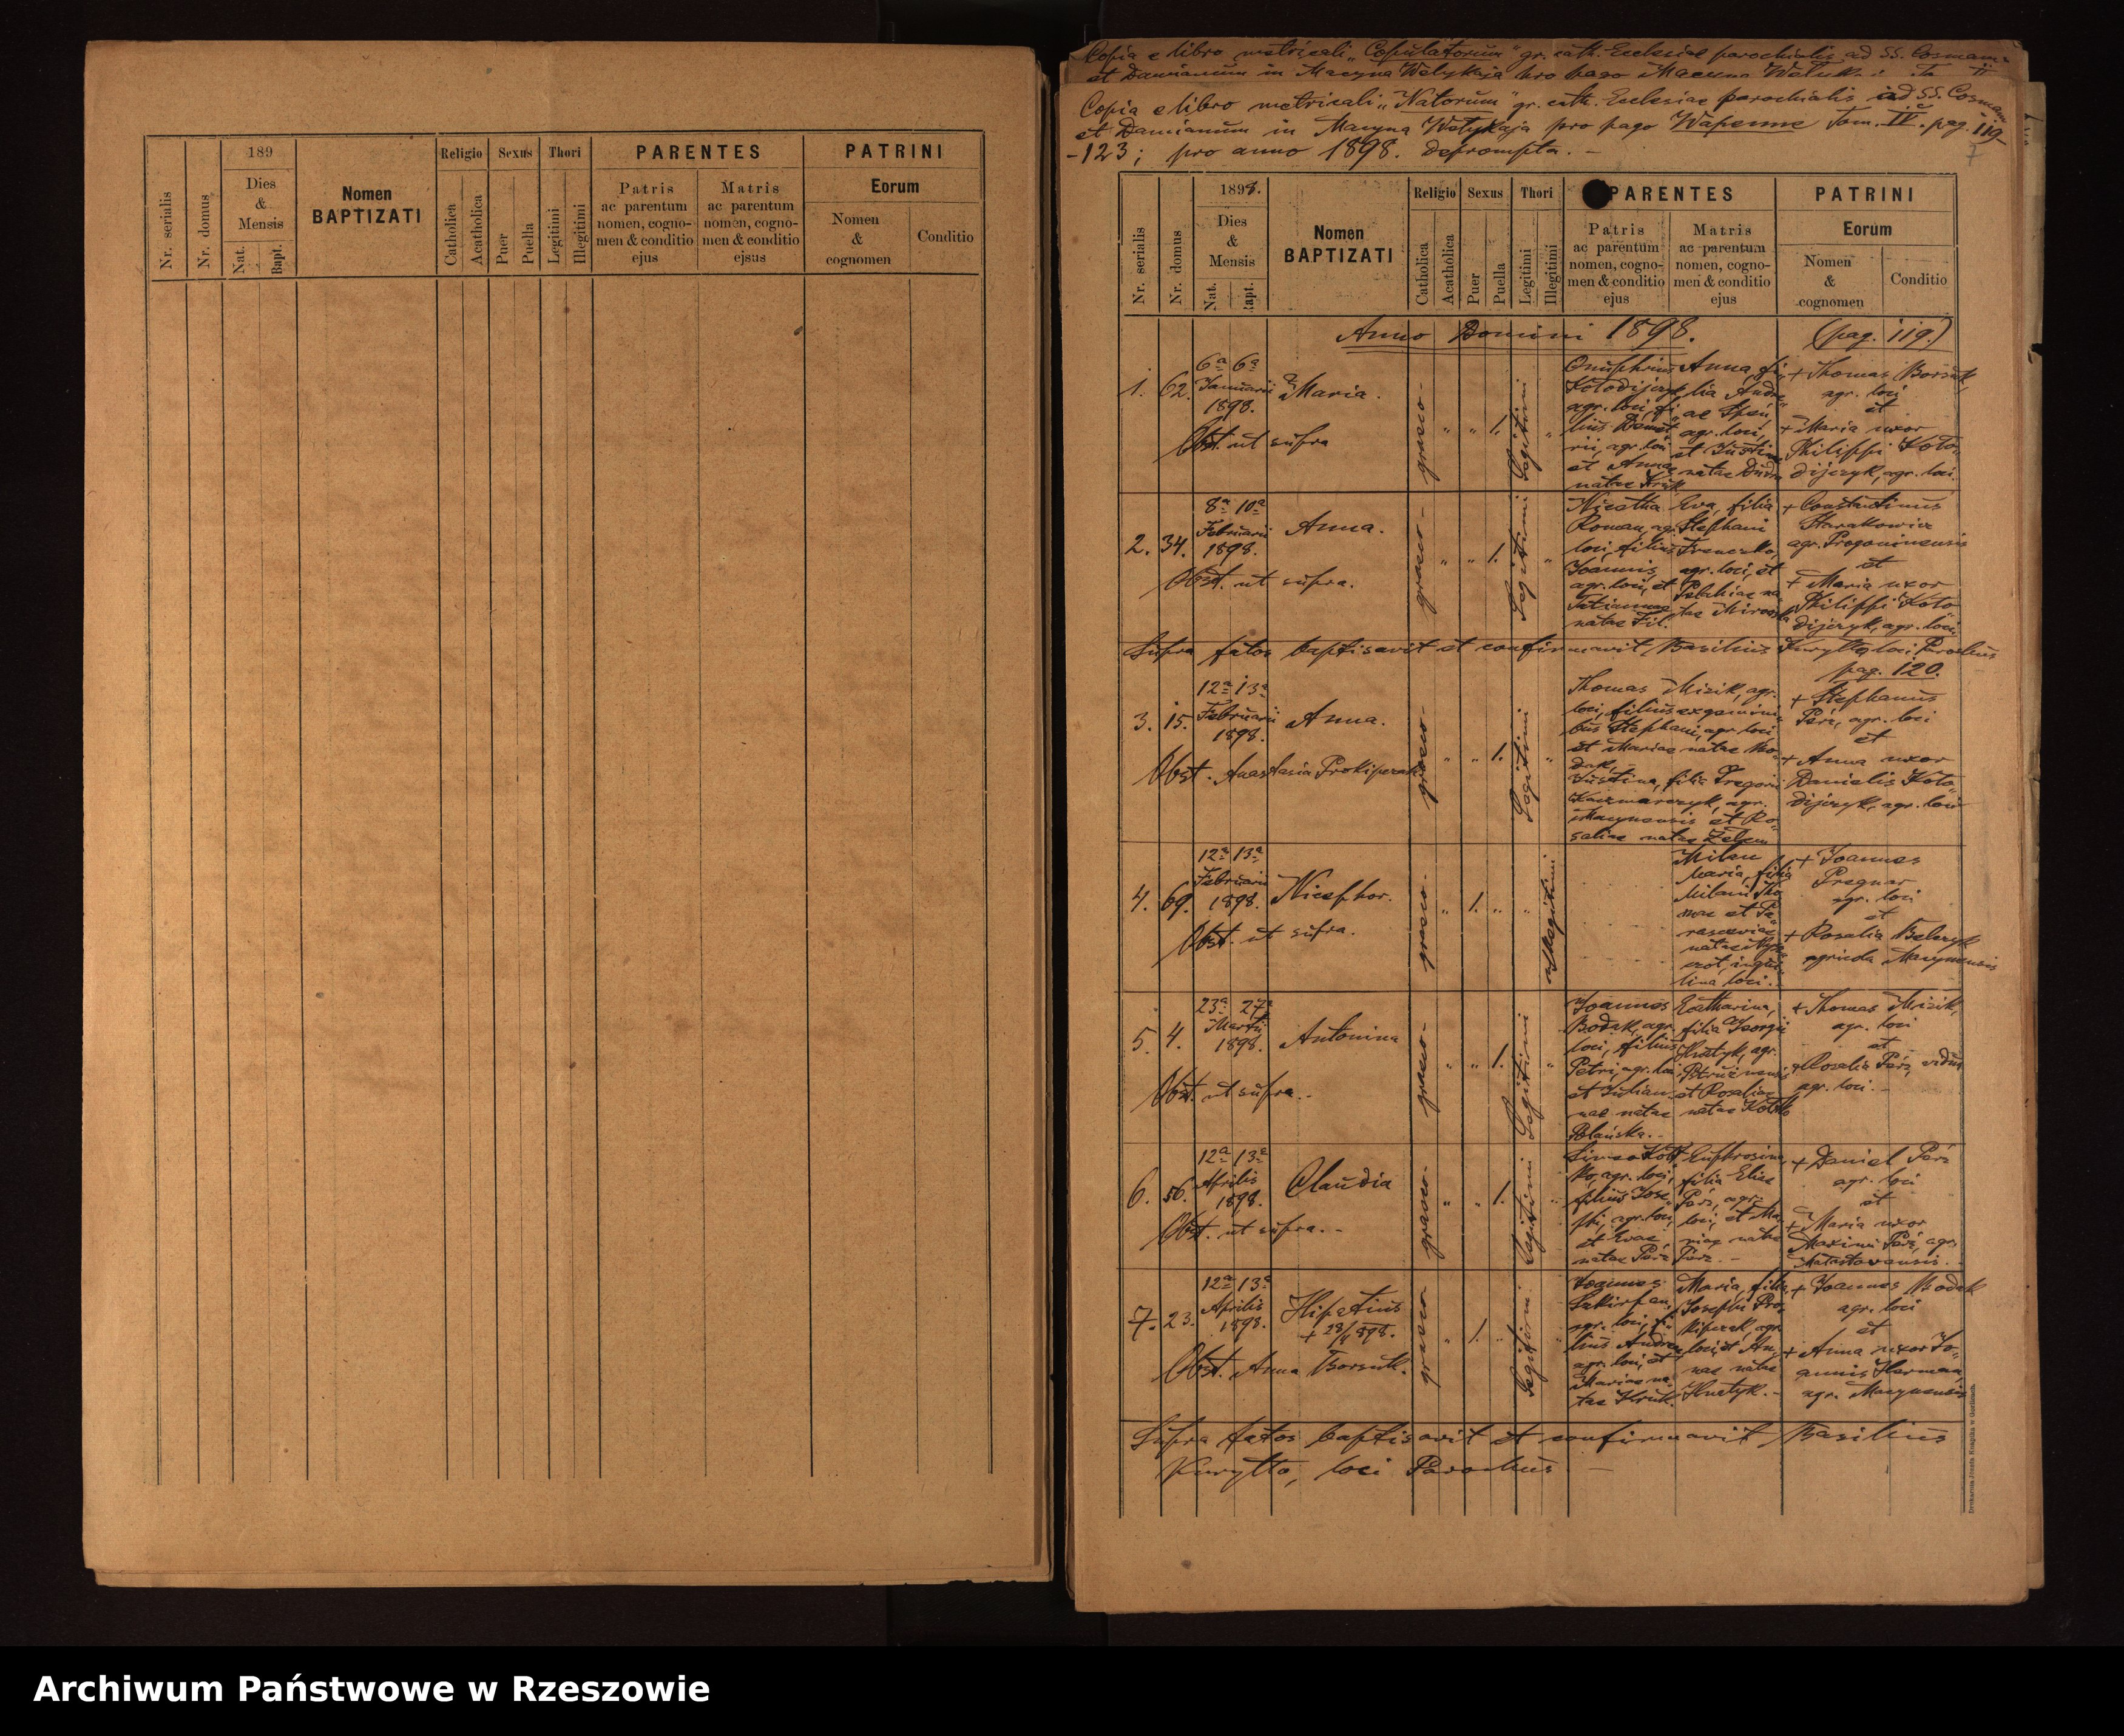 189
Religio Sexus Thori PARENTES PATRINI
Nr. serialis
Nr. domus
Dies
&
Mensis
Nat.
Bapt.
Nomen
BAPTIZATI
Catholica
Acatholica
Puer
Puella
Legitimi
Illegitimi
Patris
ac parentum
nomen, cogno-
men & conditio
ejus
Matris
ac parentum
nomen, cogno-
men & conditio
ejsus
Eorum
Nomen
&
cognomen
Conditio
Copia e libro metricali "Copulatorum" gr. cath. Ecclesiae parochialis ad SS. Cosmam
et Damianum in Macyna Welykaja pro pago Macyna
Copia e libro metricali "Natorum" gr. cath. Ecclesiae parochialis ad SS. Cosmam
et Damianum in Macyna Welykaja pro pago Wapenne Tom. IV. pag. 119-
-123; pro anno 1898. deprompta. -
7
1898.
Religio Sexus Thori PARENTES PATRINI
Nr. serialis
Nr. domus
Dies
&
Mensis
Nat.
Bapt.
Nomen
BAPTIZATI
Catholica
Acatholica
Puer
Puella
Legitimi
Illegitimi
Patris
ac parentum
nomen, cogno-
men & conditio
ejus
Matris
ac parentum
nomen, cogno-
men & conditio
ejus
Eorum
Nomen
&
cognomen
Conditio
Anno Domini 1898. (pag. 119.)
1. 62.
6a 6a
Januarii
1898.
Maria.
Obst. ut supra
graeco-
1.
Legitimi
Onuphrius
agr. loci, fi-
lius
agr. loci
et Annae
natae Hruk
Anna, fi-
lia
agr. loci,
et Justinae
natae
+ Thomas Borsuk,
agr. loci
et
+ Maria uxor
Philippi Koło-
dijczyk, agr. loci.
2. 34.
8a 10a
Februarii
1898.
Anna.
Obst. ut supra.
graeco-
1.
Legitimi
Nicetha
Roman, agr.
loci, filius
Joannis,
agr. loci, et
Tatiannae
natae Fil.
Eva, filia
Stephani
agr. loci, et
Pelahiae na-
tae
+ Constantinus
Harakowicz
agr.
et
+ Maria uxor
Philippi Koło-
dijczyk, agr. loci.
Supra fatos baptisavit et confirmavit Basilius Kuryłło, loci Parochus
pag. 120.
3. 15.
12a 13a
Februarii
1898.
Anna.
Obst. Anastasia
graeco-
1.
Legitimi
Thomas Mizik, agr.
loci, filius
Stephani, agr. loci
et Mariae natae Bo-
dak,
Justina, filia Gregorii
Kaczmarczyk, agr.
Macynensis et Ro-
saliae natae
+ Stephanus
Perż, agr. loci
et
+ Anna uxor
Danielis Koło-
dijczyk, agr. loci
4. 69.
12a 13a
Februarii
1898.
Nicephor.
Obst. ut supra.
graeco-
1.
Illegitimi
Milan
Maria, filia
Milani Tho-
mae et Pa-
rascevae
natae
lina loci.
+ Joannes
Pregnar
agr. loci
et
+ Rosalia
agricola Macynensis
5. 4.
23a 27a
Martii
1898.
Antonina
Obst. ut supra.-
graeco-
1.
Legitimi
Joannes
Bodak, agr.
loci, filius
Petri, agr. loci
et Julian-
nae natae
Polańska.-
Katharina,
filia Georgii
Hnatyk, agr.
et Rosaliae
natae
+ Thomas Mizik,
agr. loci
et
+ Rosalia Perż, vidua
agr. loci.-
6. 56.
12a 13a
Aprilis
1898.
Claudia
Obst. ut supra.-
graeco-
1.
Legitimi
ko, agr. loci,
filius Jose-
phi, agr. loci,
et Evae
natae Perż
Euphrosina,
filia Eliae
Perż, agr.
loci, et Ma-
riae natae
Perż.-
+ Daniel Perż
agr. loci
et
+ Maria uxor
Maximi Perż, agr.
Małastoviensis.
7. 23.
12a 13a
Aprilis
1898.
Hipatius
Obst. Anna Borsuk.
graeco-
1.
Legitimi
Joannes
agr. loci, fi-
lius Andreae
agr. loci, et
Mariae na-
tae Hruk.
Maria, filia
Josephi Pro-
kipczak, agr.
loci, et An-
nae natae
Hnatyk.-
+ Joannes Bodak
agr. loci
et
+ Anna uxor Jo-
annis Herman,
agr. Macynensis
Supra fatos baptisavit et confirmavit Basilius
Kuryłło, loci Parochus. -
Drukarnia Józefa Knapika w Gorlicach.
Archiwum Państwowe w Rzeszowie